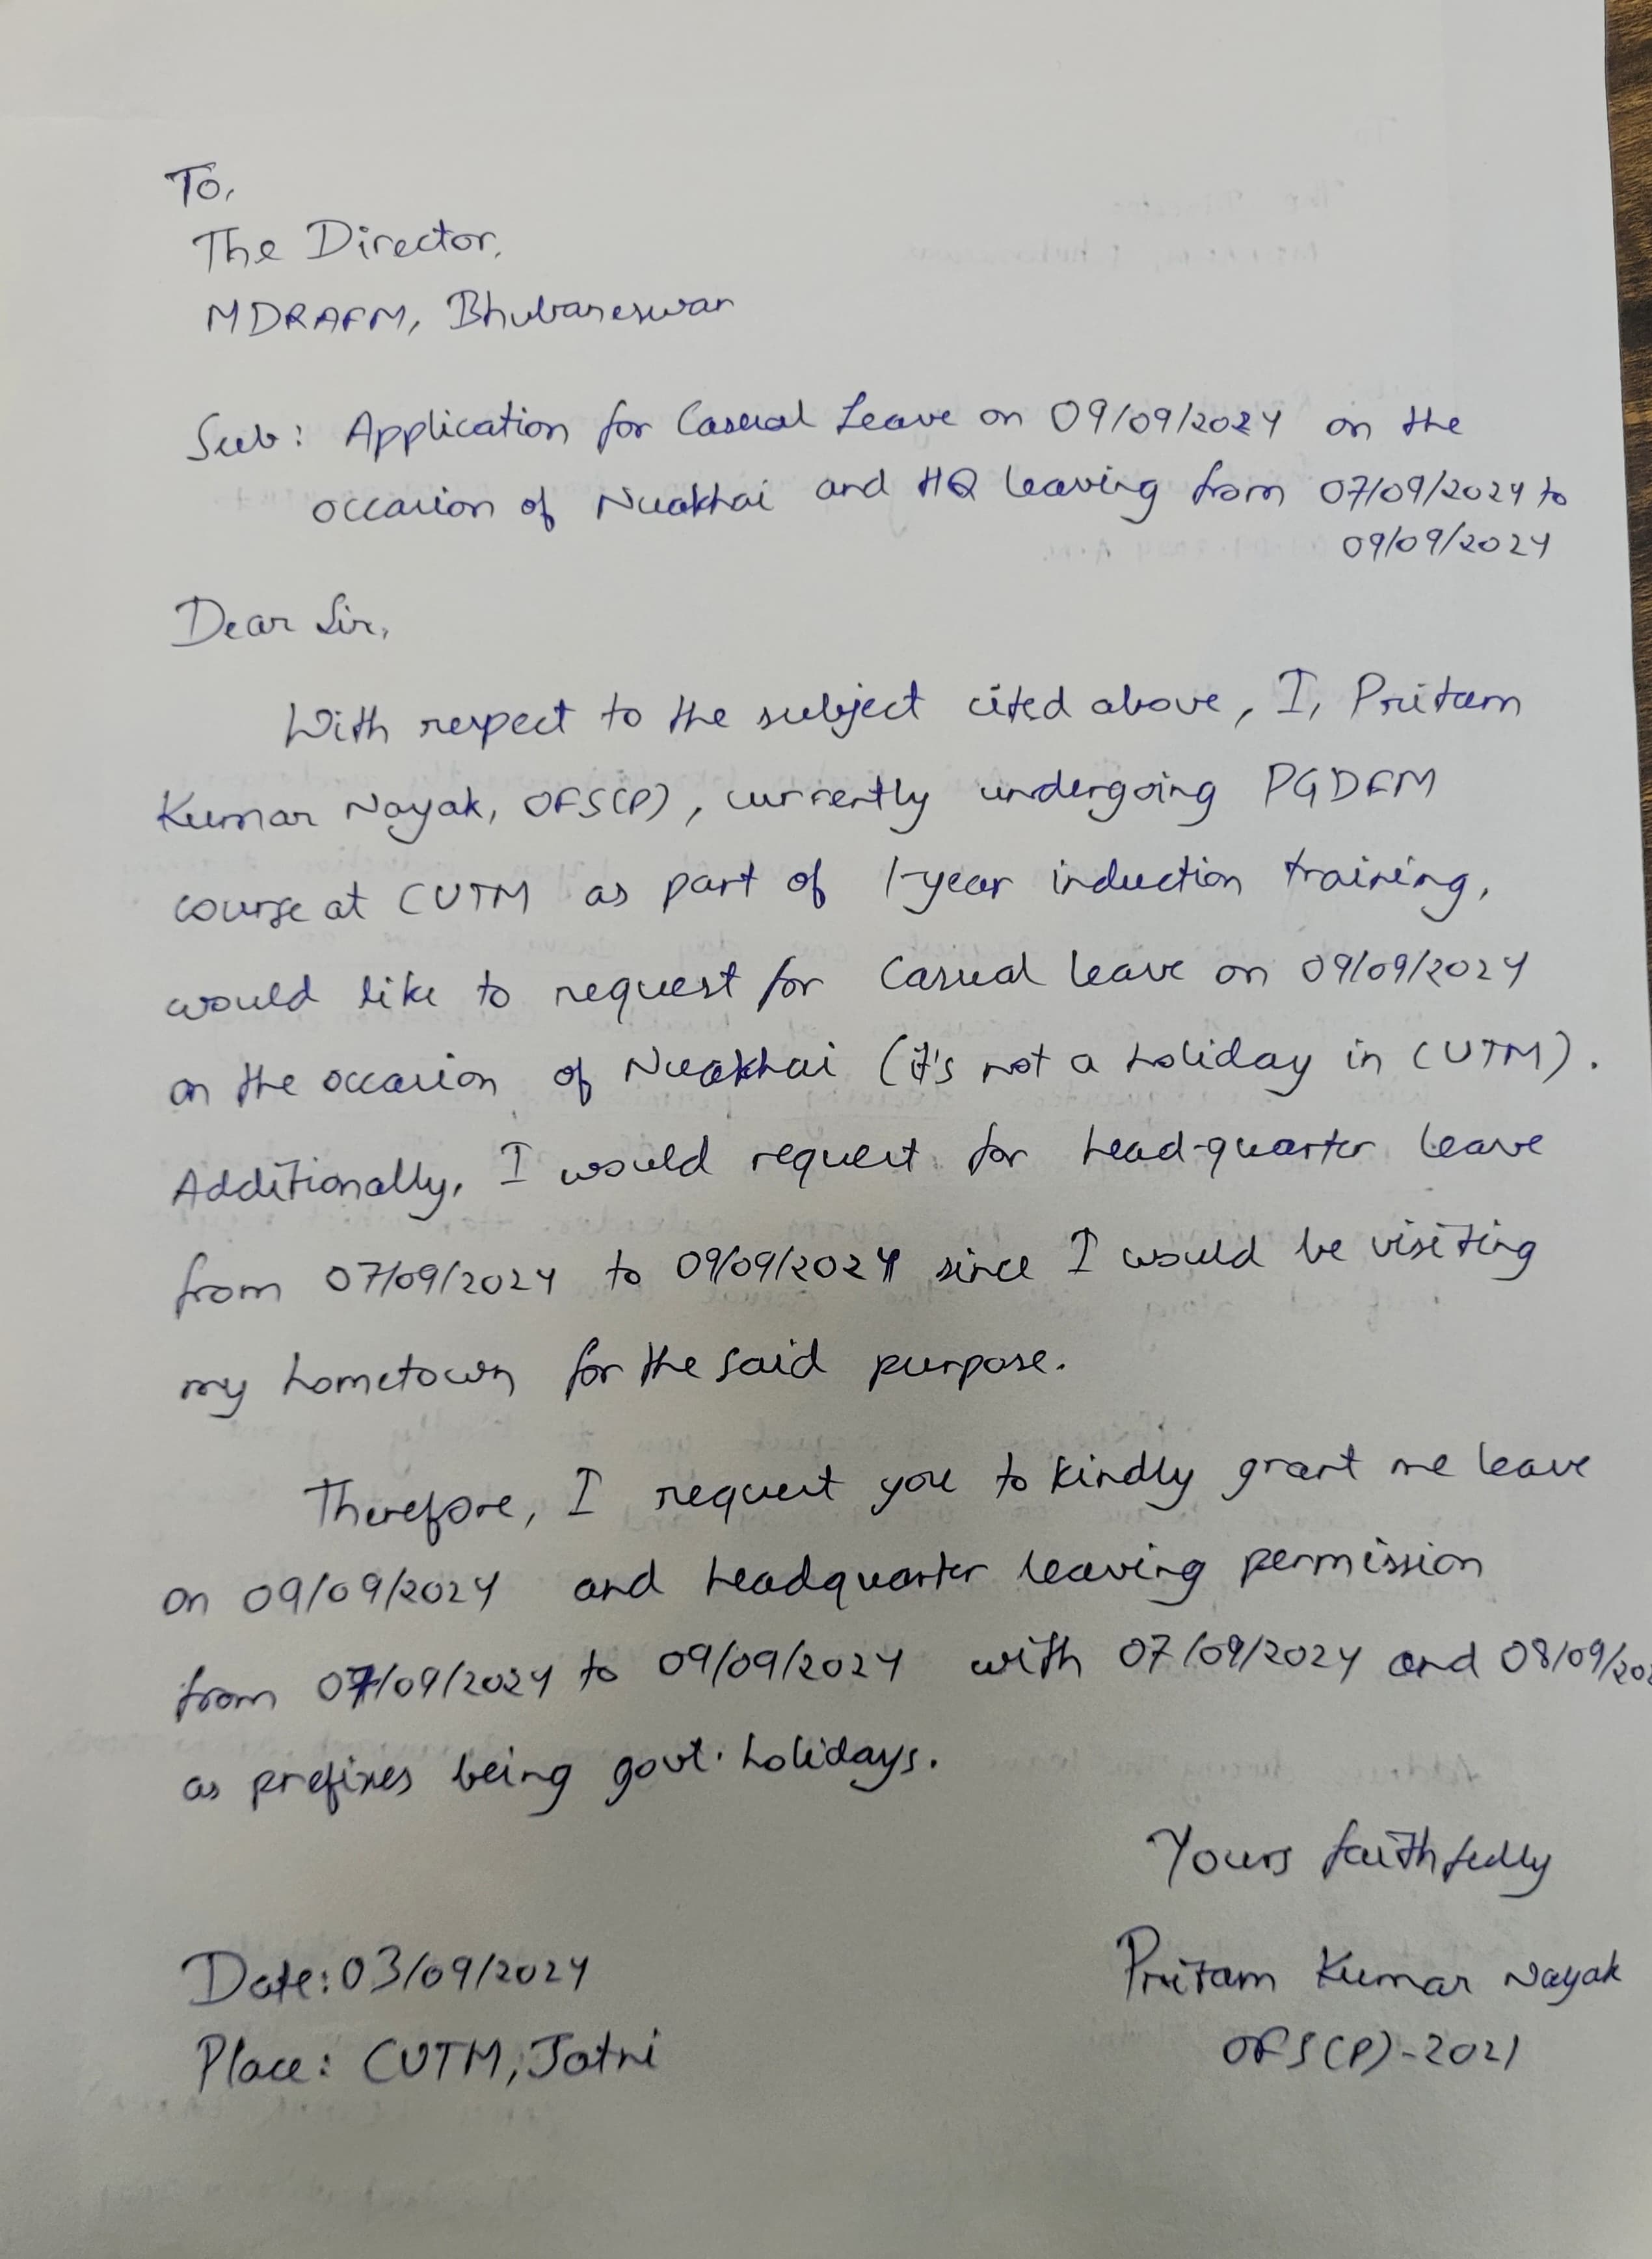 To,
The Director,
MDRAFM, Bhubaneswar
Sub: Application for Casual Leave on 09/09/2024 on the
occasion of Nuakhai and HQ leaving from 07/09/2024 to
09/09/2024
Dear Sir,
With respect to the subject cited above, I, Pritam
Kumar Nayak, OFS(P), currently undergoing PGDFM
course at CUTM as part of 1-year induction training,
would like to request for Casual leave on 09/09/2024
on the occasion of Nuakhai (it's not a holiday in CUTM).
Additionally, I would request for head-quarter leave
from 07/09/2024 to 09/09/2024 since I would be visiting
my hometown for the said purpose.
Therefore, I request you to kindly grant me leave
on 09/09/2024 and headquarter leaving permission
from 07/09/2024 to 09/09/2024 with 07/09/2024 and 08/09/202
as prefixes being govt. holidays.
Yours faithfully
Date: 03/09/2024
Pritam Kumar Nayak
Place: CUTM, Jatni
OFS(P)-2021